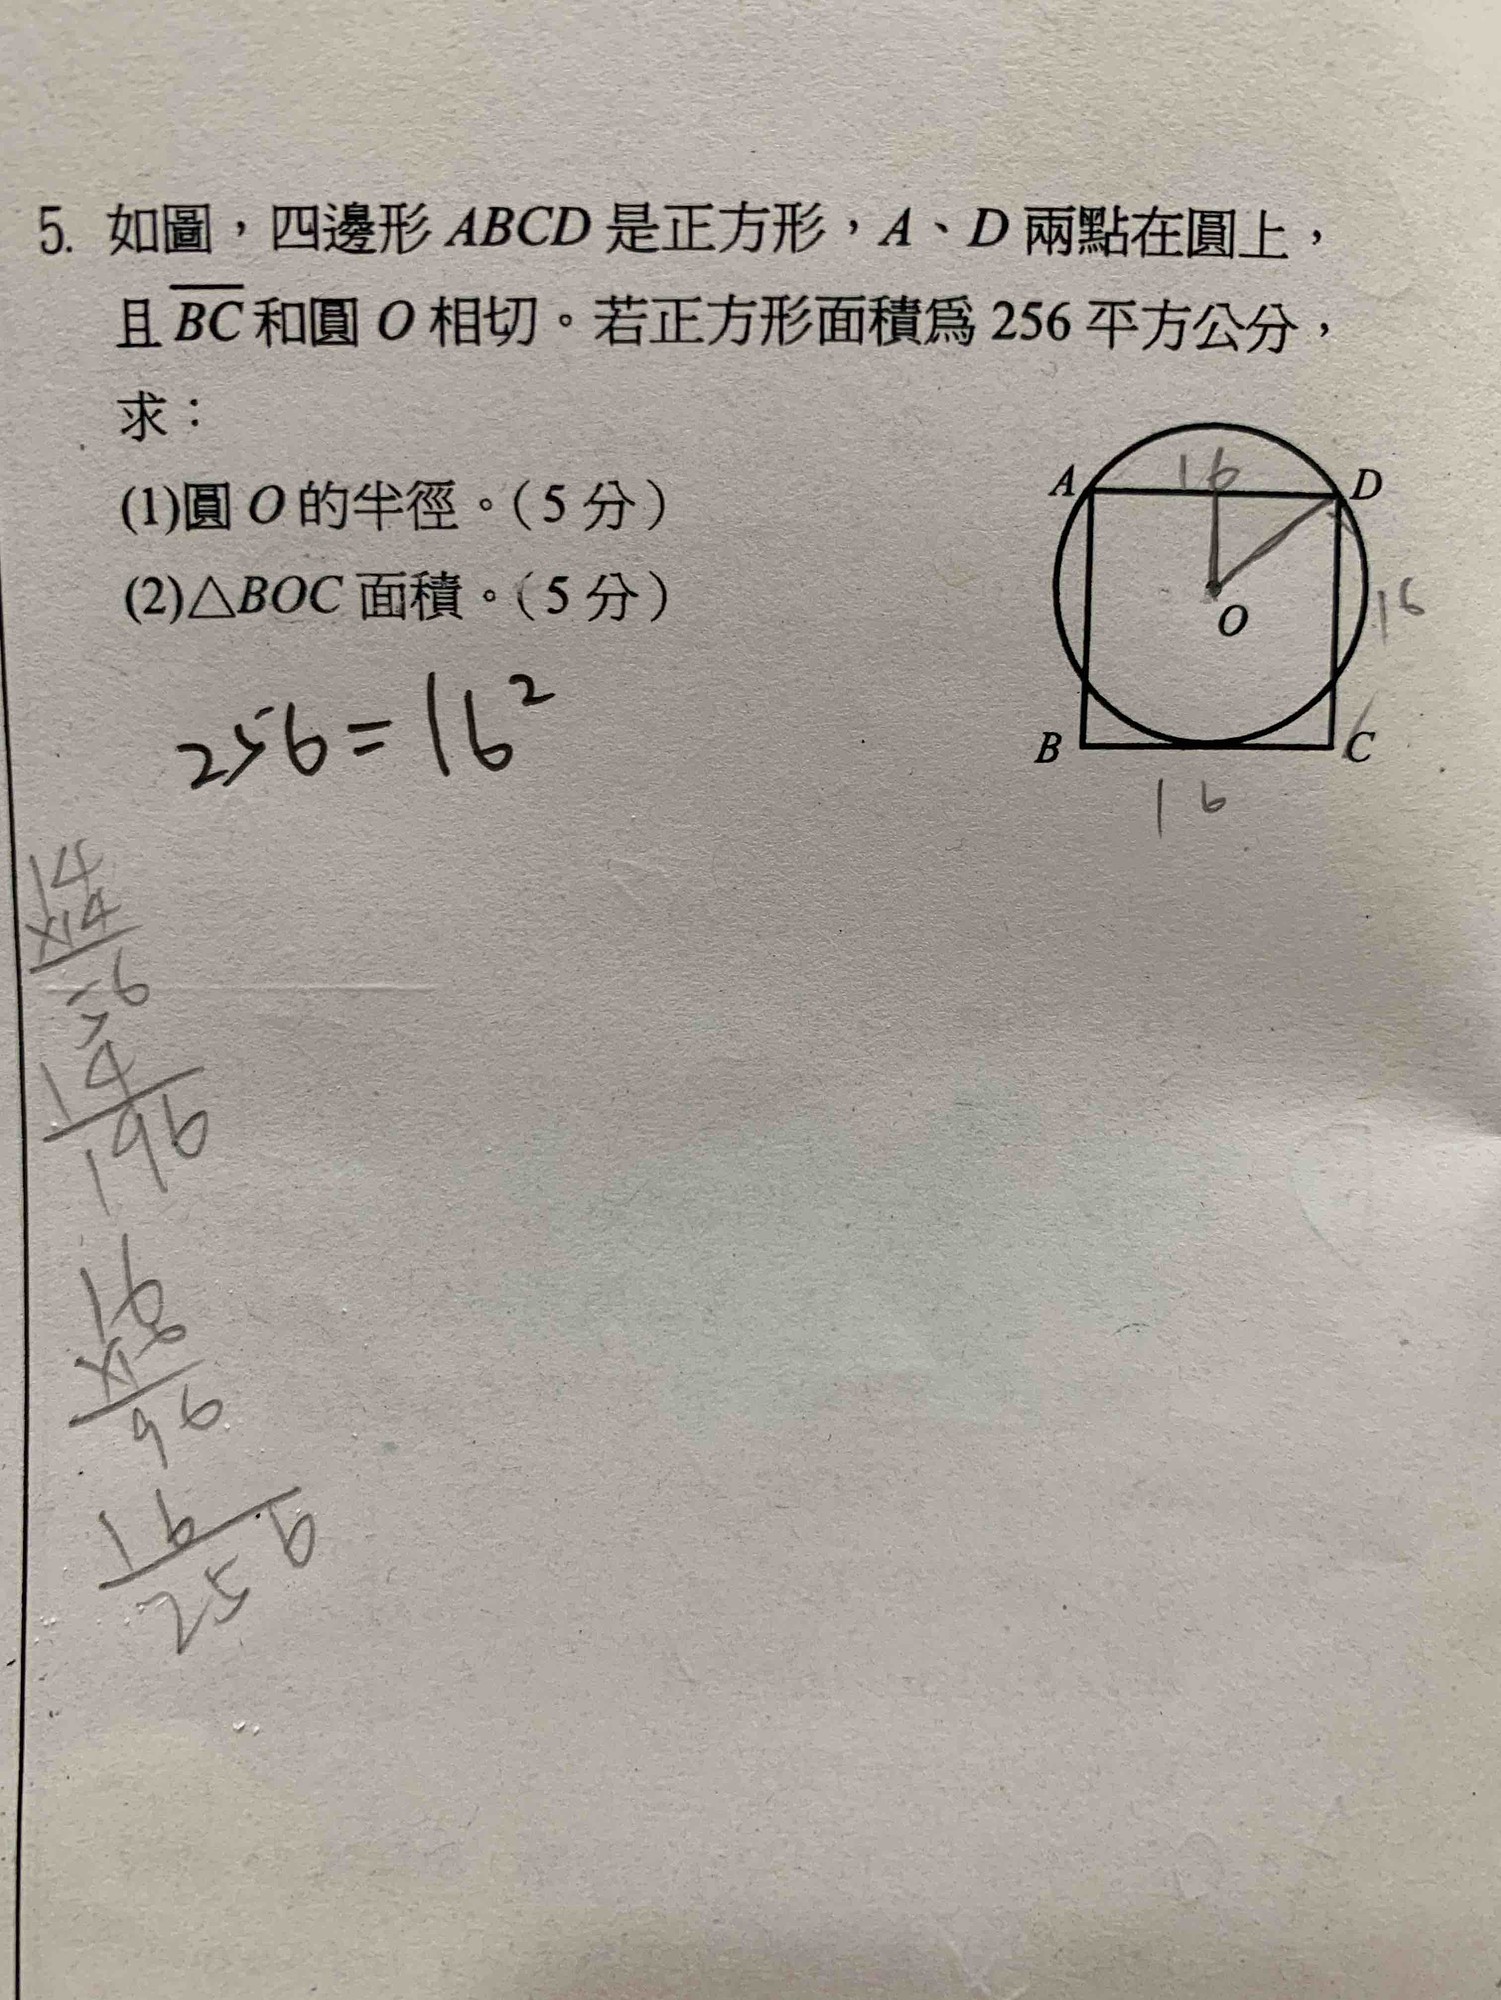 5. 如圖，四邊形 ABCD 是正方形，A、D 兩點在圓上，
且 BC 和圓 O 相切。若正方形面積為 256 平方公分，
求：
(1)圓 O 的半徑。（5 分）
(2)△BOC 面積。（5 分）
A
16
D
O
16
B
C
16
256=16²
14
×14
56
14
196
16
×16
96
16
256